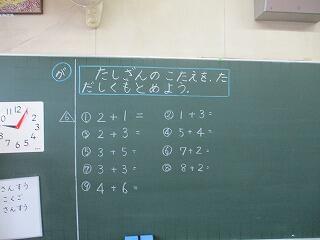 が
たしざんのこたえを、た
だしくもとめよう。
① 2+1= ② 1+3=
③ 2+3= ④ 5+4=
⑤ 3+5= ⑥ 7+2=
⑦ 3+3= ⑧ 8+2=
⑨ 4+6=
12 1 2 3 4 5 6 7 8 9 10 11
さんすう
こくご
さんすう